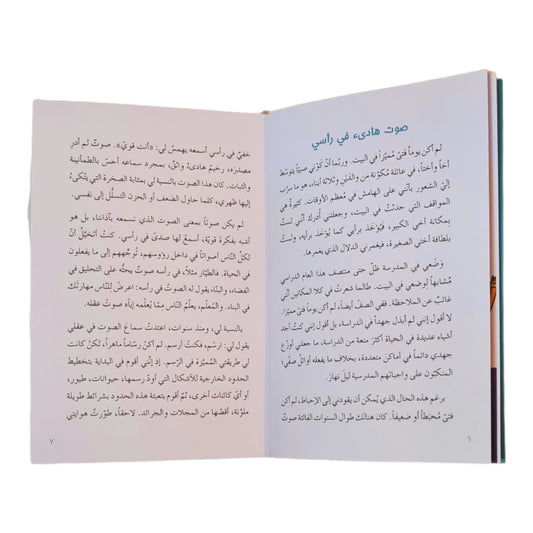 صوت هادىء في رأسي
لم أكن يوماً فتىً مُميّزاً في البيت. وربّما أنّ كَوْني صبيّاً يتوسّط
أخاً وأختاً، في عائلة مُكوّنة من والدَيْن وثلاثة أبناء، هو ما سرّب
إليّ الشعور بأنّني على الهامش في معظم الأوقات. كثيرةٌ هي
المواقف التي حدثتْ في البيت، وجعلتني أُدرك أنّني لستُ
بمكانة أخي الكبير، فيؤخذ برأيي كما يُؤخَذ برأيه، ولستُ
بلطافة أختي الصغيرة، فيغمرني الدلال الذي يغمرها.
وَضْعي في المدرسة ظلّ حتى منتصف هذا العام الدراسي
مُشابهاً لوضعي في البيت. طالما شعرتُ في كلا المكانين أنّني
غائبٌ عن الملاحظة. ففي الصفّ أيضاً، لم أكن يوماً فتىً مميّزاً.
لا أقول إنني لم أبذل جهداً في الدراسة، بل أقول إنني كنتُ أجد
أشياء عديدة في الحياة أكثر متعة من الدراسة، ما جعلني أوزّع
جهدي دائماً في أماكن متعددة، بخلاف ما يفعله أوائل صفّي؛
المنكبّون على واجباتهم المدرسية ليلَ نهار.
برغم هذه الحال الذي يُمكن أن يقودني إلى الإحباط، لم أكن
فتىً مُحبَطاً أو ضعيفاً. كان هنالك طوال السنوات الفائتة صوتٌ
٦
خفيّ في رأسي أسمعه يهمسُ لي: «أنت قويّ». صوتٌ لم أدرِ
مصدرَه، رخيمٌ هادىءٌ واثقٌ، بمجرد سماعه أحسّ بالطمأنينة
والثبات. كان هذا الصوت بالنسبة لي بمثابة الصخرة التي يتّكىءُ
إليها ظهري، كلما حاول الضعف أو الحزن التسلُّل إلى نفسي.
لم يكن صوتاً بمعنى الصوت الذي نسمعه بآذاننا، بل هو
أشبه بفكرة قويّة، أسمعُ لها صدىً في رأسي. كنتُ أتخيّلُ أنّ
لكلّ النّاس أصواتاً في داخل رؤوسهم، تُوجّههم إلى ما يفعلون
في الحياة. فالطيّار مثلاً، في رأسه صوتٌ يحثّه على التحليق في
الفضاء، والبنّاء يقول له الصوت في رأسه: اعرضْ للنّاس مهارتَك
في البناء. والمُعلّم، يعلّمُ النّاس مِمّا يُعلّمه إيّاه صوتُ عقله.
بالنسبة لي، ومنذ سنوات، اعتدتُ سماعَ الصوت في عقلي
يقول لي: ارسُم، فكنتُ أرسم. لم أكن رسّاماً ماهراً، لكنْ كانت
لي طريقتي المُميّزة في الرّسم. إذ إنّني أقوم في البداية بتخطيط
الحدود الخارجية للأشكال التي أودّ رسمها، حيوانات، طيور،
أو أيّ كائنات أخرى، ثمّ أقوم بتعبئة هذه الحدود بشرائط طويلة
ملوّنة، أقصّها من المجلات والجرائد. لاحقاً، طوّرتُ هوايتي
٧